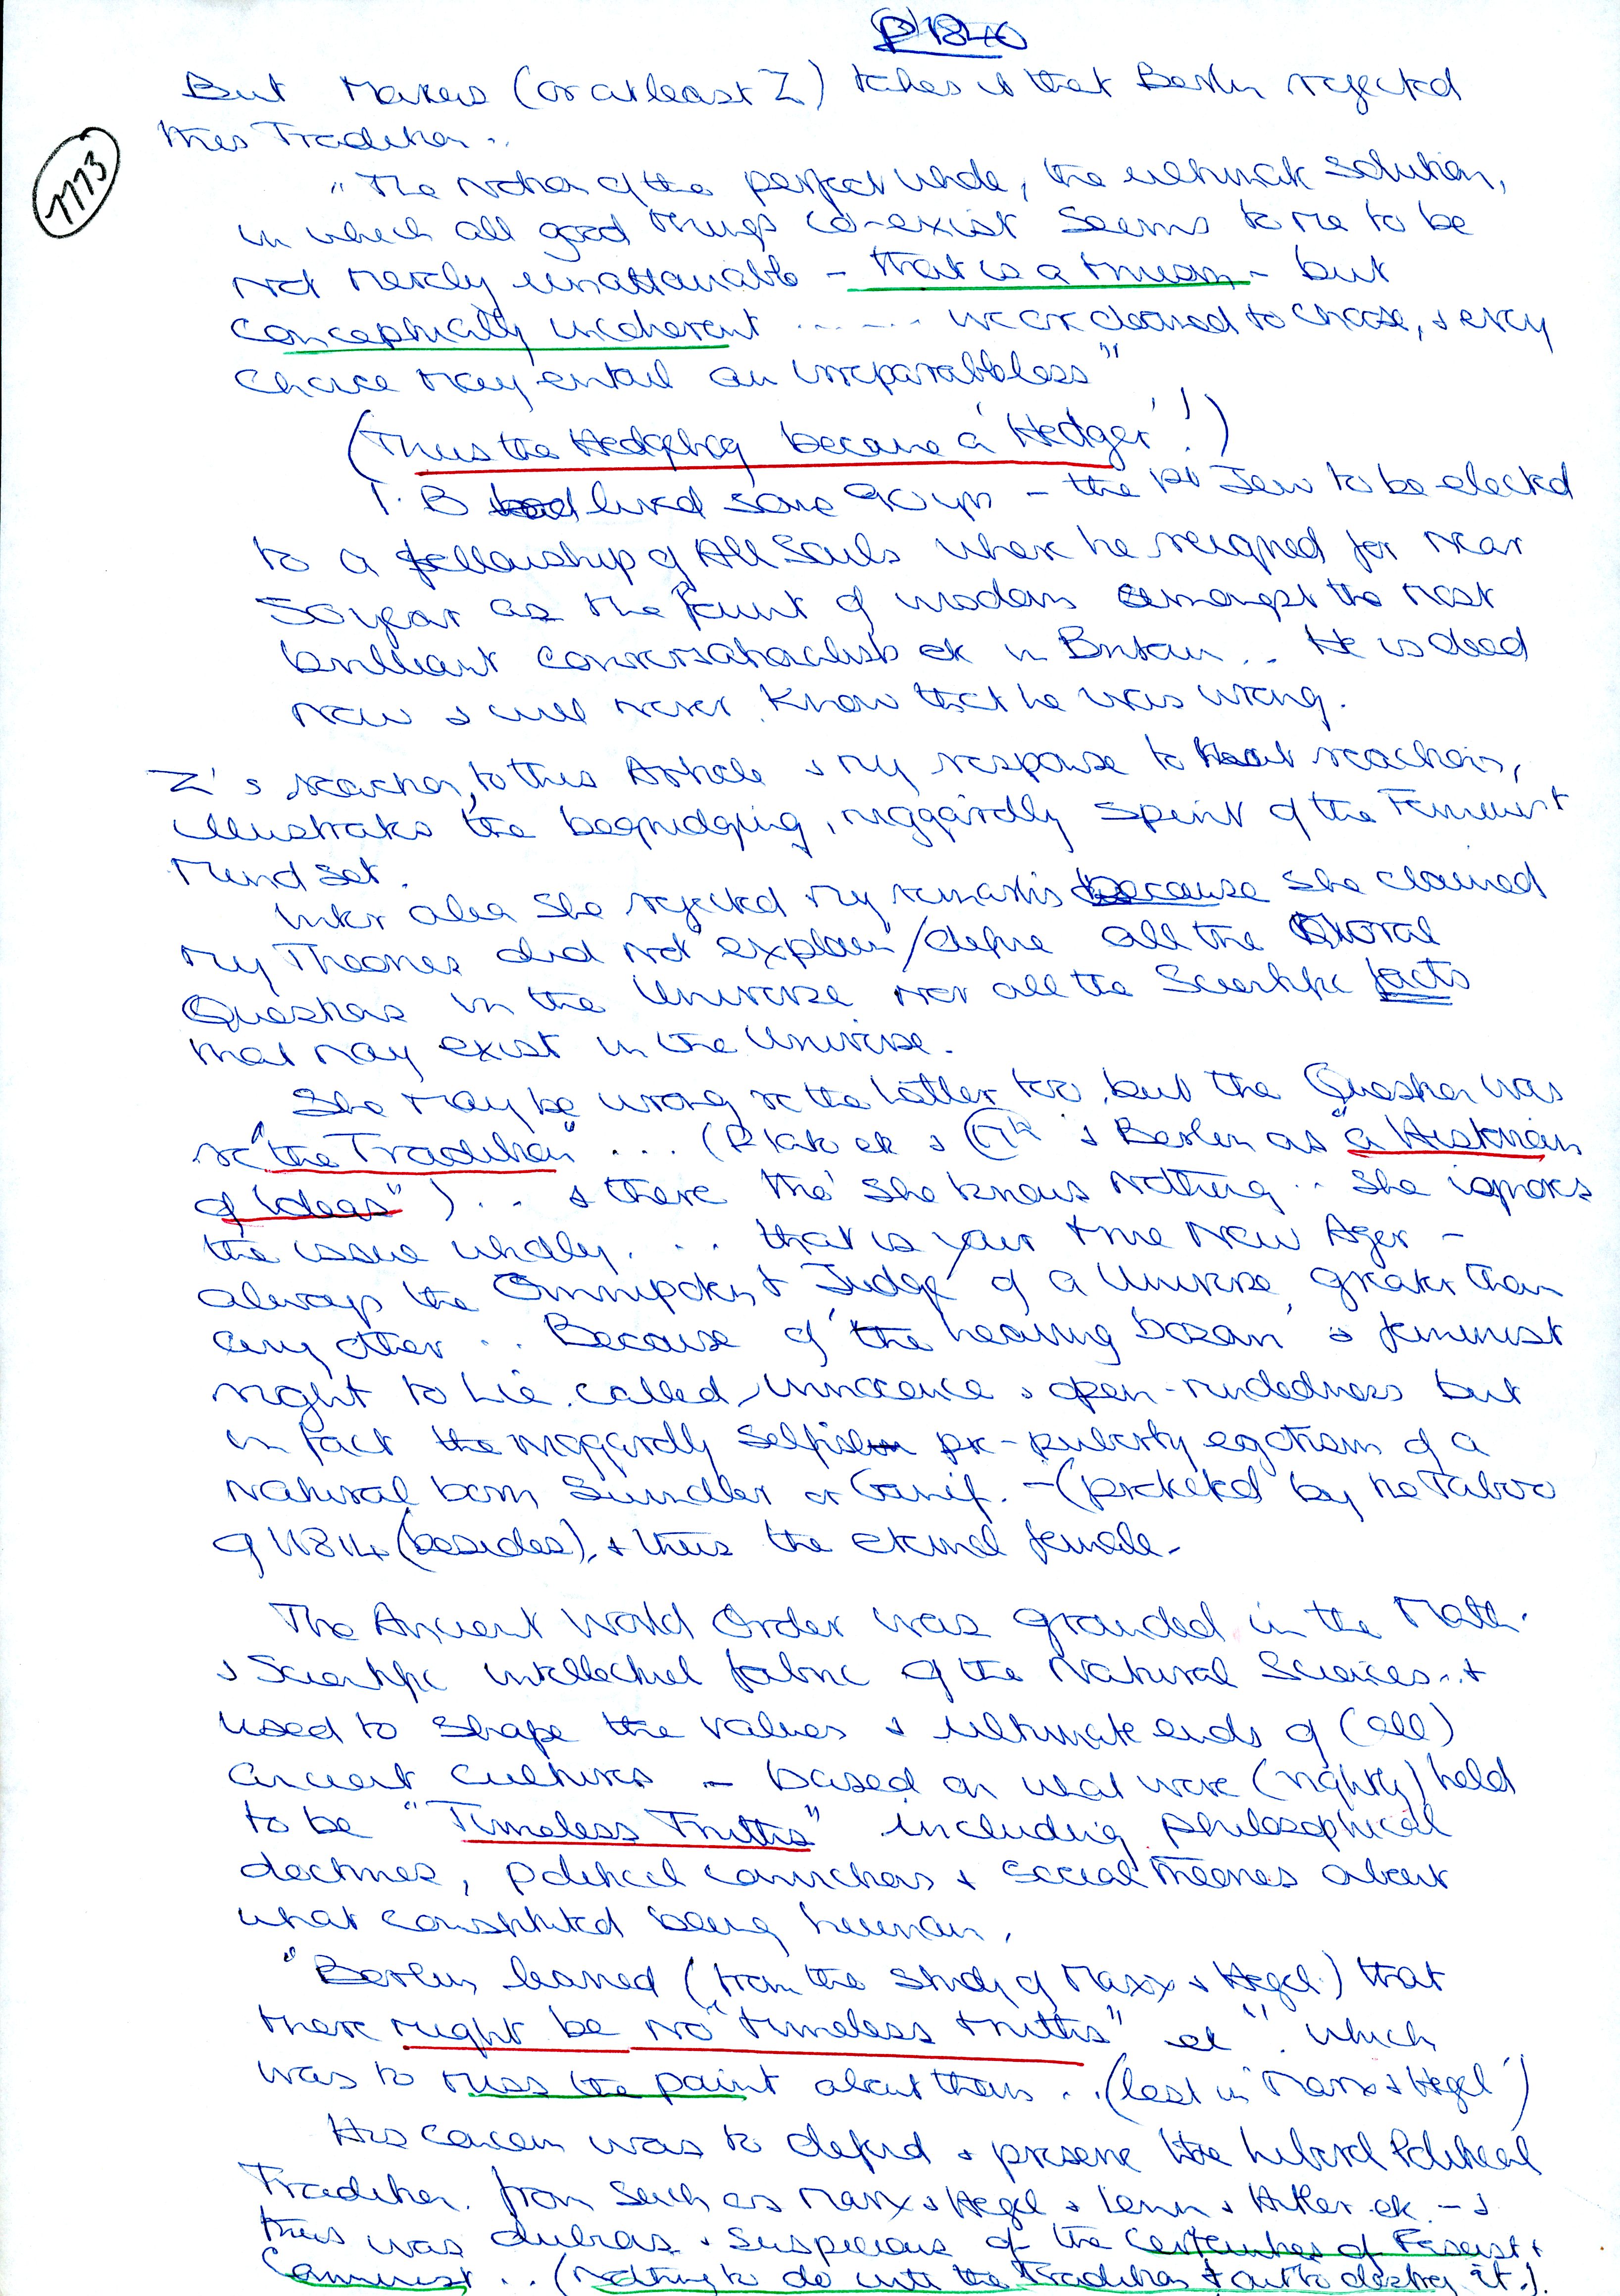 P1840
But Makers (or at least Z) takes it that Berlin rejected
this Tradition..
1773
"The notion of the perfect whole, the ultimate solution,
in which all good things co-exist seems to me to be
not merely unattainable - that is a truism - but
conceptually incoherent ...... we are doomed to choose, & every
choice may entail an irreparable loss"
(Thus the Hedgehog became a 'Hedger'!)
I.B lived some 90 yrs - the 1st Jew to be elected
to a fellowship of All Souls where he reigned for near
50 year as the fount of wisdom amongst the most
brilliant conversationalists etc in Britain.. He is dead
now & will never know that he was wrong.
Z's reaction, to this Article & my response to that reaction,
illustrates the begrudging, niggardly spirit of the Feminist
Mind set.
Inter alia she rejected my remarks because she claimed
my Theories did not explain/define all the Moral
Questions in the Universe nor all the Scientific facts
that may exist in the Universe.
She may be wrong re the latter too, but the Question was
re "the Tradition" ... (Plato etc & & Berlin as "a Historian
of Ideas") .. & there tho' she knows nothing .. she ignores
the issue wholly. .. that is your true New Ager -
always the Omnipotent Judge of a Universe, greater than
any other .. Because of 'the heaving bosom' & feminist
right to Lie. called innocence & open-mindedness but
in fact the niggardly selfish pre-puberty egotism of a
natural born Swindler or Ganif. - (protected by the Taboo
of (besides), & thus the eternal female -
The Ancient World Order was grounded in the Math.
& Scientific intellectual fabric of the Natural Sciences.. &
used to shape the values & ultimate ends of (all)
ancient cultures - based on what were (rightly) held
to be "Timeless Truths" including philosophical
doctrines, political convictions & social theories about
what constituted being human.
"Berlin learned (from the study of Marx & Hegel) that
there might be no "timeless truths" etc". which
was to miss the point about them .. (lost in 'Marx & Hegel')
His concern was to defend & preserve the Liberal Political
Tradition. from such as Marx & Hegel & Lenin & Hitler etc - &
thus was dubious & suspicious of the Certainties of Fascist &
Communist .. (nothing to do with the Tradition & out to destroy it.).